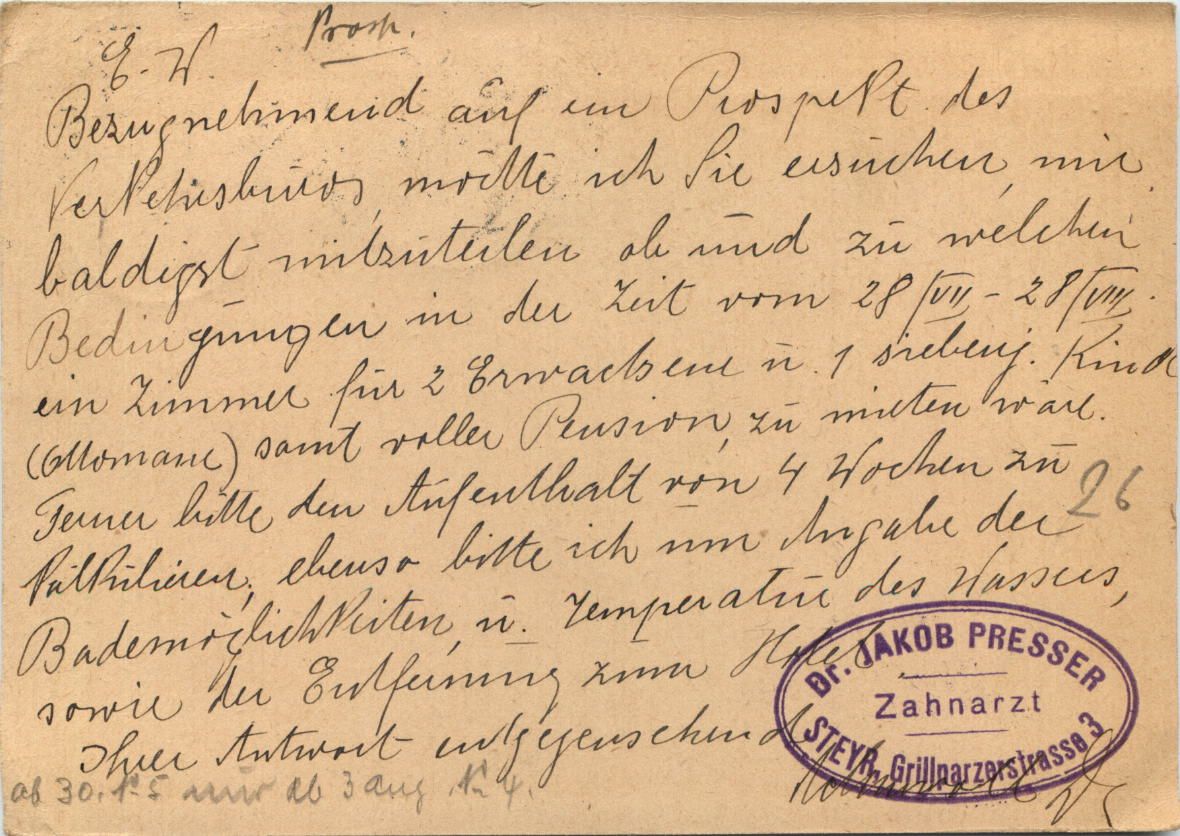 Prosp.
E. W.
Bezugnehmend auf ein Prospekt des
Verkehrsbüros, möchte ich Sie ersuchen, mir
baldigst mitzuteilen ob und zu welchen
Bedingungen in der Zeit vom 28/VII – 28/VIII.
ein Zimmer für 2 Erwachsene u. 1 siebenj. Kind
(Ottomane) samt voller Pension, zu mieten wäre.
Ferner bitte den Aufenthalt von 4 Wochen zu
26
kalkulieren, ebenso bitte ich um Angabe der
Bademöglichkeiten, u. Temperatur des Wassers,
sowie der Entfernung zum Hotel.
Ihrer Antwort entgegensehend
Dr. JAKOB PRESSER
Zahnarzt
STEYR, Grillparzerstrasse 3
ab 30. N. 5 nur ab 3 Aug. N. 4.